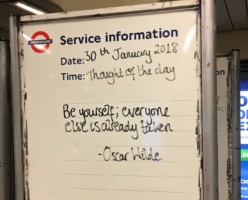 Service information
Date: 30th January 2018
Time: Thought of the day
Be yourself; everyone
else is already taken
-Oscar Wilde